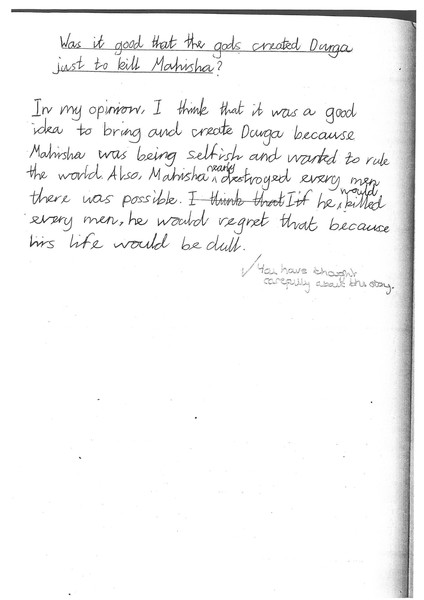 Was it good that the gods created Durga
just to kill Mahisha?
In my opinion, I think that it was a good
idea to bring and create Durga because
Mahisha was being selfish and wanted to rule
the world. Also, Mahisha nearly destroyed every men
there was possible. I think that If if he would killed
every men, he would regret that because
his life would be dull.
✓ You have thought
carefully about this story.